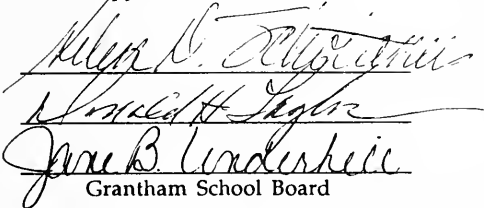 D.
Donald H. Taylor
Jane B. Underhill
Grantham School Board